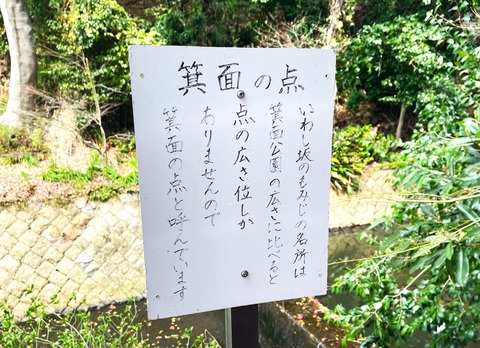 箕面の点
いわし坂のもみじの名所は
箕面公園の広さに比べると
点の広さ位しか
ありませんので
箕面の点と呼んでいます